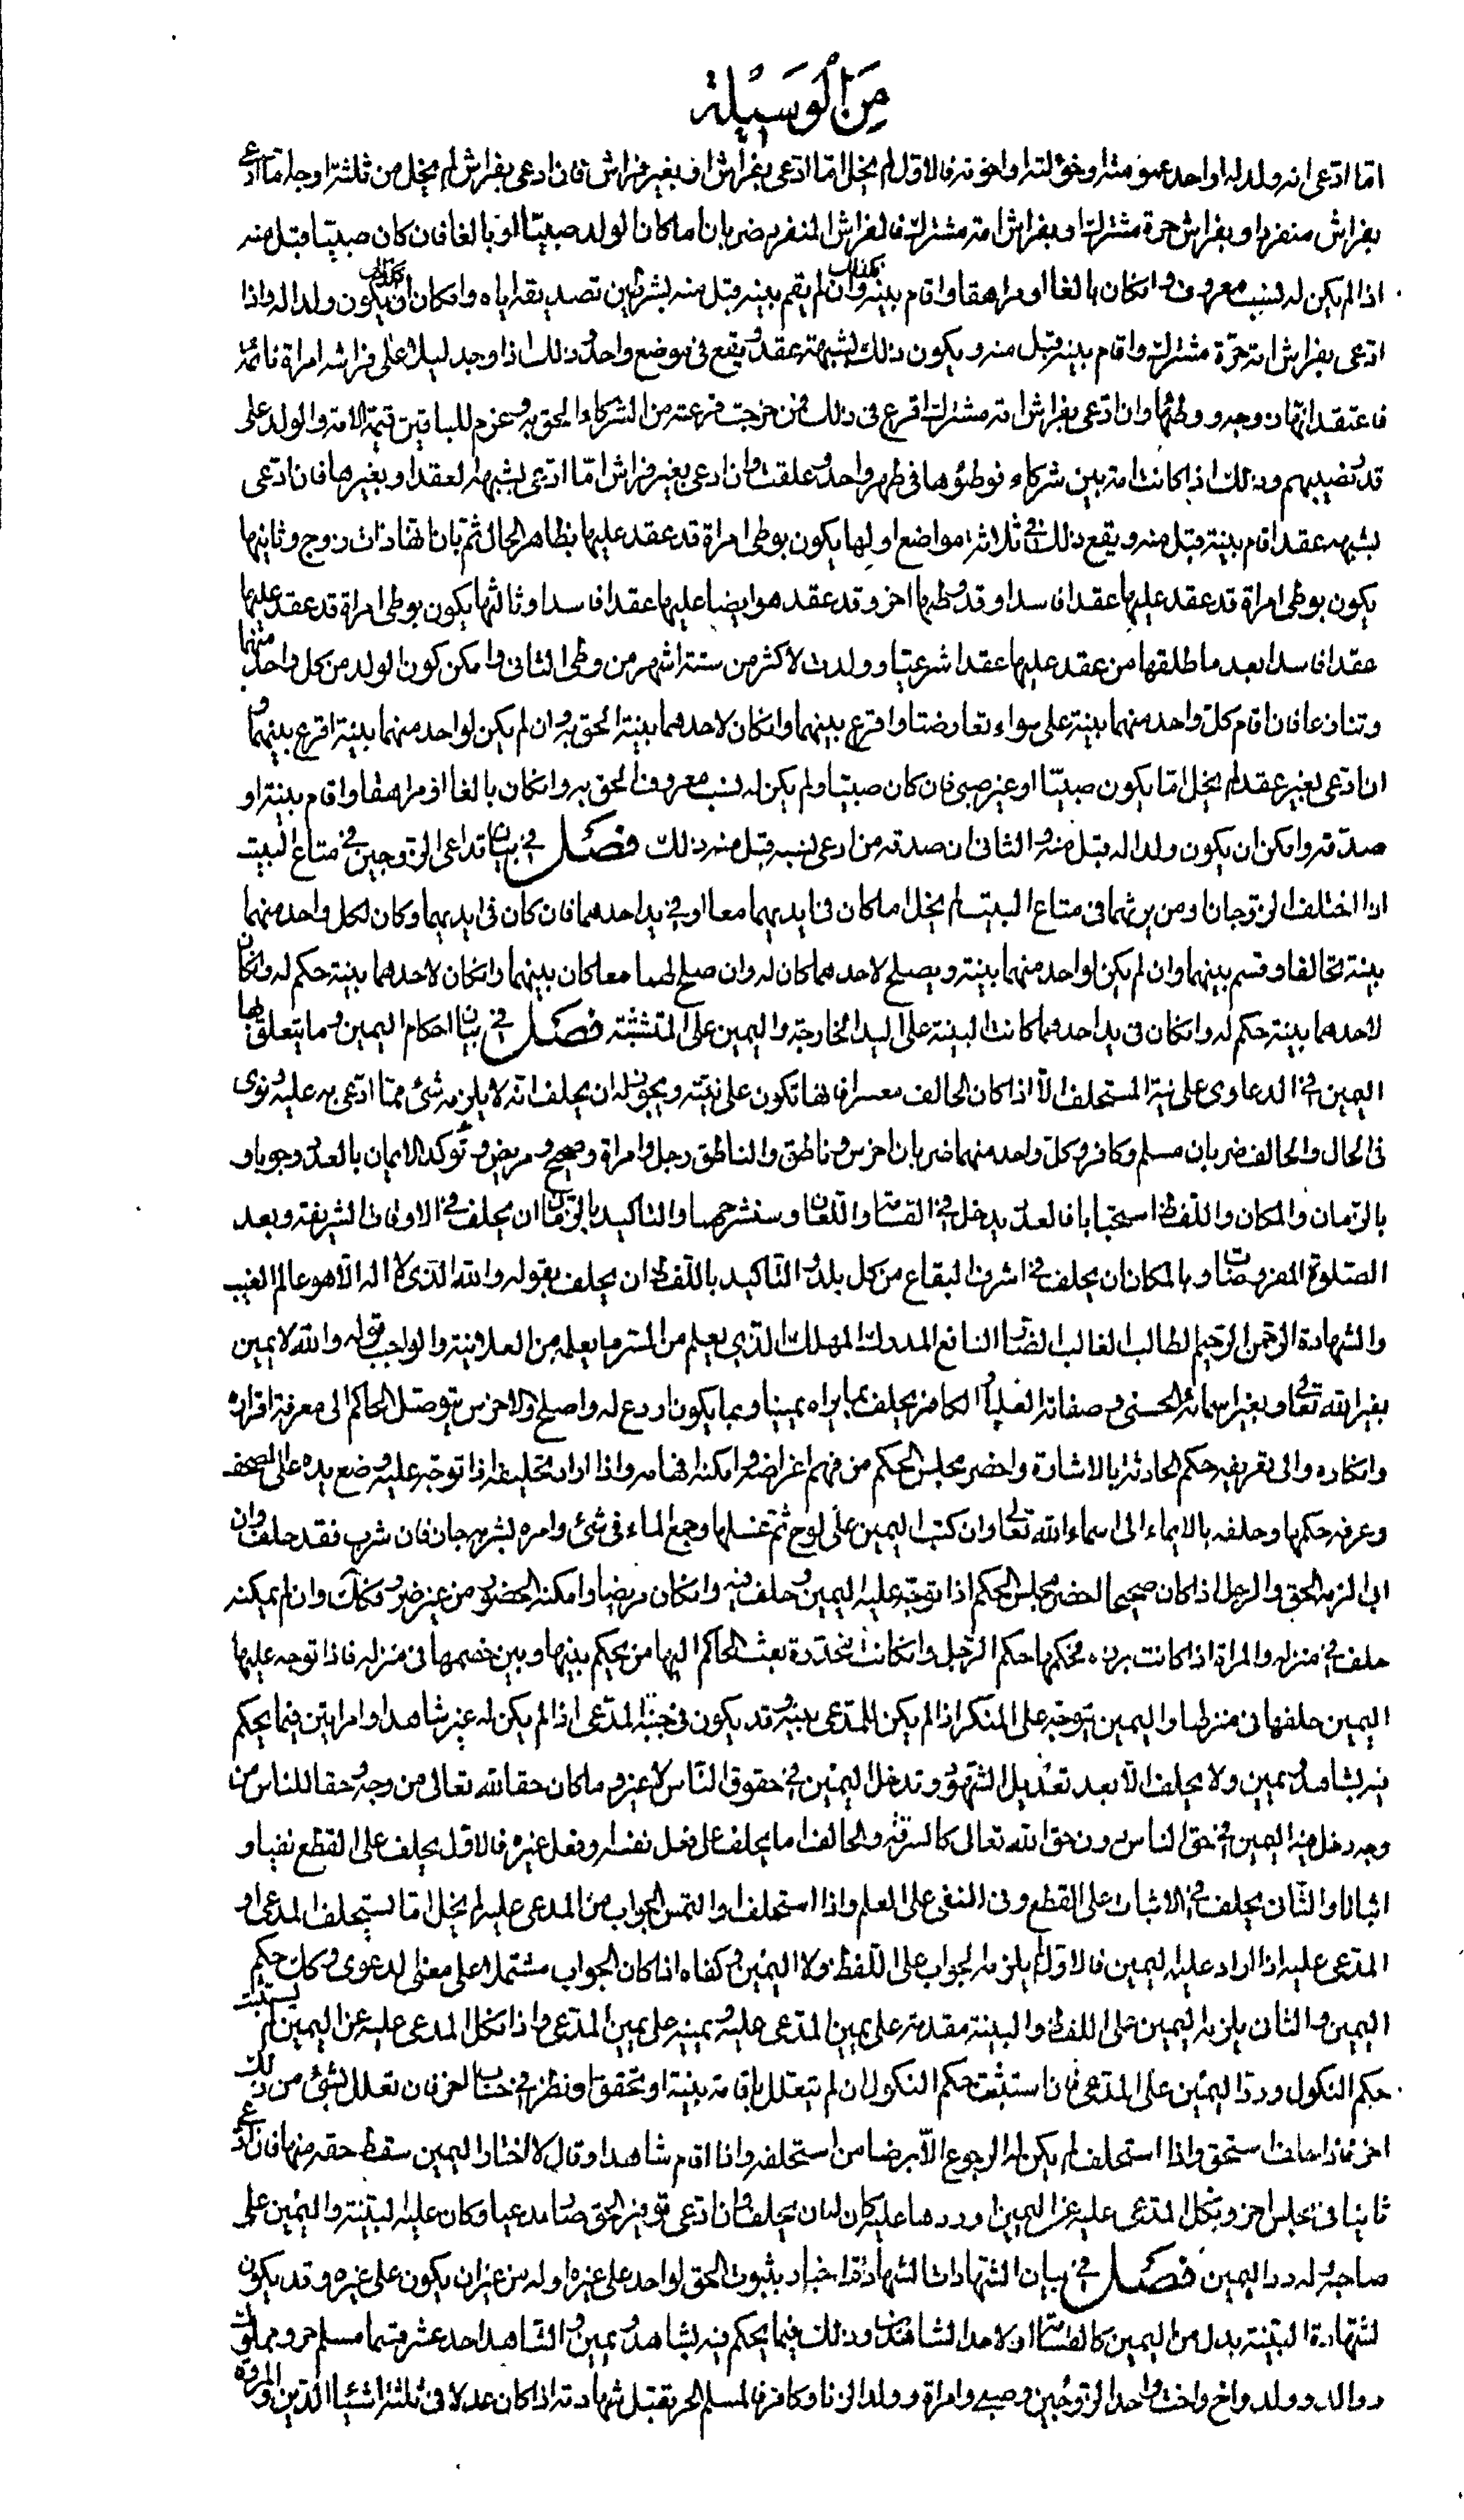 مِنَ الوَسيلة
اما ادعى انه ولد له او احد عمومته وخؤلته واخوته فالاول لم يخل اما ادعى بفراش او بغير فراش فان ادعى بفراش لم يخل من ثلثة اوجه اما ادعى
بفراش منفرد او بفراش حرة مشتركة او بفراش امة مشتركة فالفراش المنفرد ضربان اما كان الولد صبيّا او بالغا فان كان صبيّا قبل منه
اذا لم يكن له نسب معروف وان كان بالغا او مراهقا واقام بينة فكذلك وان لم يقم بينة قبل منه بشرطين تصديقه اياه وامكان ان يكون ولدا له واذا
ادعى بفراش حرّة مشتركة واقام بينة قبل منه ويكون ذلك لشبهة عقد ويقع في موضع واحد وذلك اذا وجد ليلا على فراشه امراة نائمة
فاعتقد انها زوجه ووطئها وان ادعى بفراش امة مشتركة اقرع في ذلك فمن خرجت قرعته من الشركاء الحق به وغرم للباقين قيمة الامة والولد على
قدر نصيبهم وذلك اذا كانت امة بين شركاء فوطئوها في طهر واحد وعلقت وان ادعى بغير فراش امّا ادعى لشبهة العقد او بغيرها فان ادعى
بشبهه عقد اقام بينة قبل منه ويقع ذلك في ثلاثة مواضع اولها يكون بوطى امراة قد عقد عليها بظاهر الحال ثم بان انها ذات زوج وثانيها
يكون بوطى امراة قد عقد عليها عقدا فاسدا وقد وطئها اخر وقد عقد هو ايضا عليها عقدا فاسدا وثالثها يكون بوطى امراة قد عقد عليها
عقدا فاسدا بعد ما طلقها من عقد عليها عقدا شرعيّا وولدت لاكثر من ستة اشهر من وطى الثانى وامكن كون الولد من كل واحد منهما
وتنازعا فان اقام كلّ واحد منهما بينة على سواء تعارضتا واقرع بينهما وان كان لاحدهما بينة الحق به وان لم يكن لواحد منهما بينة اقرع بينهما و
ان ادعى بغير عقد لم يخل اما يكون صبيّا او غير صبى فان كان صبيّا ولم يكن له نسب معروف الحق به وان كان بالغا او مراهقا واقام بينة او
صدّقه وامكن ان يكون ولدا له قبل منه والثانى ان صدقه من ادعى نسبه قبل منه ذلك فصل في بيان تداعى الزوجين في متاع البيت
اذا اختلف الزوجان او من يرثهما في متاع البيت لم يخل اما كان في ايديهما معا او في يد احدهما فان كان في ايديهما وكان لكل واحد منهما
بينة تحالفا وقسم بينهما وان لم يكن لواحد منهما بينة ويصلح لاحدهما كان له وان صلح لهما معا كان بينهما وان كان لاحدهما بينة حكم له وان كان
لاحدهما بينة حكم له وان كان في يد احدهما كانت البينة على اليد الخارجة واليمين على المتشبثة فصل في بيان احكام اليمين وما يتعلق بها
اليمين في الدعاوى على نية المستحلف الّا اذا كان الحالف معسرا فانها تكون على نيّته ويجوز له ان يحلف انّه لا يلزمه شئ ممّا ادّعى به عليه ونوى
في الحال والحالف ضربان مسلم وكافر وكلّ واحد منهما ضربان اخرس وناطق والناطق رجل وامراة وصحيح ومريض وتؤكد الايمان بالعدد وجوبا و
بالزمان والمكان واللّفظ استحبابا فالعدد يدخل في القسامة واللّعان وسنشرحهما والتاكيد بالزمان ان يحلف في الاوقات الشريفة وبعد
الصّلوة المفروضات وبالمكان ان يحلف في اشرف البقاع من كل بلد والتّاكيد باللّفظ ان يحلف بقوله والله الّذى لا اله الّا هو عالم الغيب
والشهادة الرّحمن الرّحيم الطالب الغالب الضّار النافع المدرك المهلك الذي يعلم من السّر ما يعلمه من العلانية والواجب قوله والله لا يمين
بغير الله تعالى وبغير اسمائه الحسنى وصفاته العليا والكافر يحلف بما يراه يمينا وبما يكون اردع له واصلح والاخرس يتوصّل الحاكم الى معرفة اقراره
وانكاره والى تعريفه حكم الحادثة بالاشارة واحضر مجلس الحكم من فهم اغراضه وامكنه افهامه واذا اراد تحليفه اذا توجّه عليه وضع يده على المصحف
وعرفه حكمها وحلفه بالايماء الى اسماء الله تعالى وان كتب اليمين على لوح ثم غسلها وجمع الماء في شئ وامره بشربه جاز فان شرب فقد حلف وان
ابى الزمه الحق والرجل اذا كان صحيحا احضر مجلس الحكم اذا توجّه عليه اليمين وحلف فيه وان كان مريضا وامكنه الحضور من غير ضرر فكذلك وان لم يمكنه
حلف في منزله والمراة اذا كانت برزة فحكمها حكم الرّجل وان كانت مخدّرة بعث الحاكم اليها من يحكم بينها وبين خصمها في منزله فاذا توجه عليها
اليمين حلفها في منزلها واليمين يتوجّه على المنكر اذا لم يكن للمدّعى بينة وقد يكون في جنبة المدّعى اذا لم يكن له غير شاهد او امراتين فيما يحكم
فيه بشاهد ويمين ولا يحلف الّا بعد تعديل الشّهود وتدخل اليمين في حقوق النّاس لا غير وما كان حقا لله تعالى من وجه وحقا للناس من
وجه دخل فيه اليمين في حق الناس دون حق الله تعالى كالسرقة والحالف اما يحلف على فعل نفسه او فعل غيره فالاول يحلف على القطع نفيا و
اثباتا والثّانى يحلف في الاثبات على القطع وفى النفى على العلم واذا استحلف والتمس الجواب من المدعى عليه لم يخل امّا يستحلف المدعى او
المدّعى عليه اذا اراد عليه اليمين فالاول لم يلزمه الجواب على اللّفظ ولا اليمين وكفاه اذا كان الجواب مشتملا على معنى الدعوى وكان حكم
اليمين والثانى يلزمه اليمين على اللفظ والبينة مقدمة على يمين المدّعى عليه ويمينه على يمين المدّعى واذا نكل المدعى عليه عن اليمين لم يستثبت
حكم النكول وردّ اليمين على المدّعى فان استثبت حكم النكول ان لم يتعلل باقامة بينة او تحقق او نظر في حساب اخر فان تعلل لشئ من ذلك
اخر فاذا حلف استحق واذا استحلف لم يكن له الرجوع الّا برضا من استحلفه واذا اقام شاهدا وقال لا اختار اليمين سقط حقه منها فان ادّعى
ثانيا في مجلس اخر ونكل المدّعى عليه عن اليمين وردها عليه كان له ان يحلف وان ادعى توفير الحق صار مدعيا وكان عليه البيّنة واليمين على
صاحبه وله رد اليمين فصل في بيان الشّهادات الشهادة اخبار بثبوت الحق لواحد على غيره او له من غير ان يكون على غيره وقد يكون
لشهادة البيّنة بدل من اليمين كالقسامة او لاحد الشاهدين وذلك فيما يحكم فيه بشاهد ويمين والشّاهد احد عشر قسما مسلم حر ومملوك
ووالد وولد واخ واخت واحد الزوجين وصبى وامراة وولد الزنا وكافر فالمسلم الحر تقبل شهادته اذا كان عدلا في ثلثة اشياء الدّين والمروة